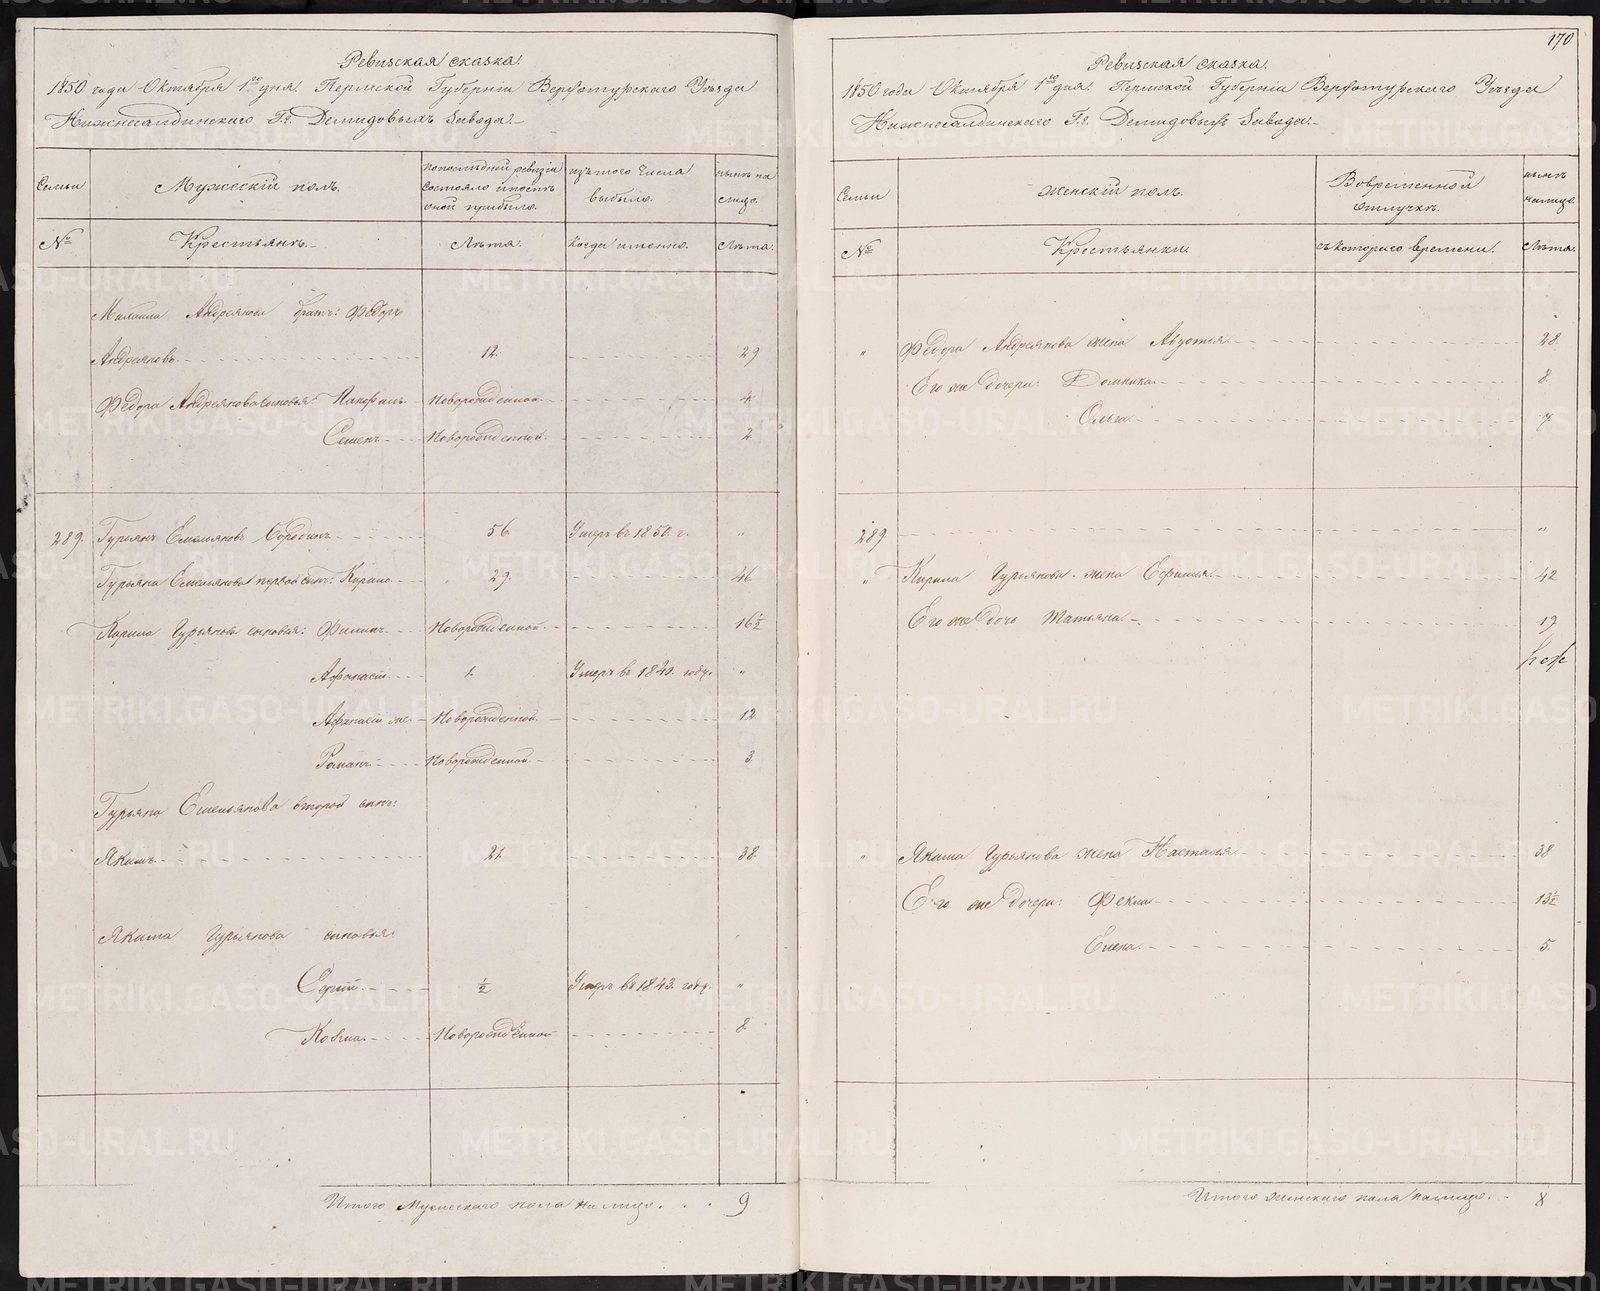 Ревизская сказка.
1850 года Октября 1го дня. Пермской Губерніи Верхотурскаго Уѣзда
Нижнесалдинскаго Гг. Демидовыхъ Завода.
Семьи
Мужескій полъ.
по послѣдней ревизіи состояло и послѣ оной прибыло.
изъ того числа выбыло.
нынѣ на лицо.
№
Крестьянъ.
Лѣта.
Когда именно.
Лѣта.
Михаила Андреянова братъ: Федоръ
Андреяновъ 12. 29
Федора Андреянова сыновья: Панфилъ Новорожденной 4.
Семенъ Новорожденной 2
289. Гурьянъ Емельяновъ Бородинъ 56. Умеръ въ 1850. г. "
Гурьяна Емельянова первой сынъ: Кирило 29. 46
Кирила Гурьянова сыновья: Филипъ Новорожденной 16½
Афанасій 1. Умеръ въ 1840. году. "
Афанасій же Новорожденной 12.
Романъ Новорожденной 3
Гурьяна Емельянова второй сынъ:
Якимъ 21. 38.
Якима Гурьянова сыновья:
Сергій ½ Умеръ въ 1843. году. "
Козма Новорожденной 8.
Итого Мужескаго пола на лицо. 9
170
Ревизская сказка.
1850 года Октября 1го дня. Пермской Губерніи Верхотурскаго Уѣзда
Нижнесалдинскаго Гг. Демидовыхъ Завода.
Семьи
Женскій полъ.
Во временной отлучкѣ.
нынѣ на лицо.
№
Крестьянки.
съ котораго времени.
Лѣта.
" Федора Андреянова жена Авдотья 28.
Его же дочери: Домника 8.
Ольга 7
289 "
" Кирила Гурьянова жена Ефимия 42
Его же дочь Татьяна 19
" Якима Гурьянова жена Настасья 38
Его же дочери: Фекла 13½
Елена 5.
Итого женскаго пола на лицо. 8
METRIKI.GASO-URAL.RU